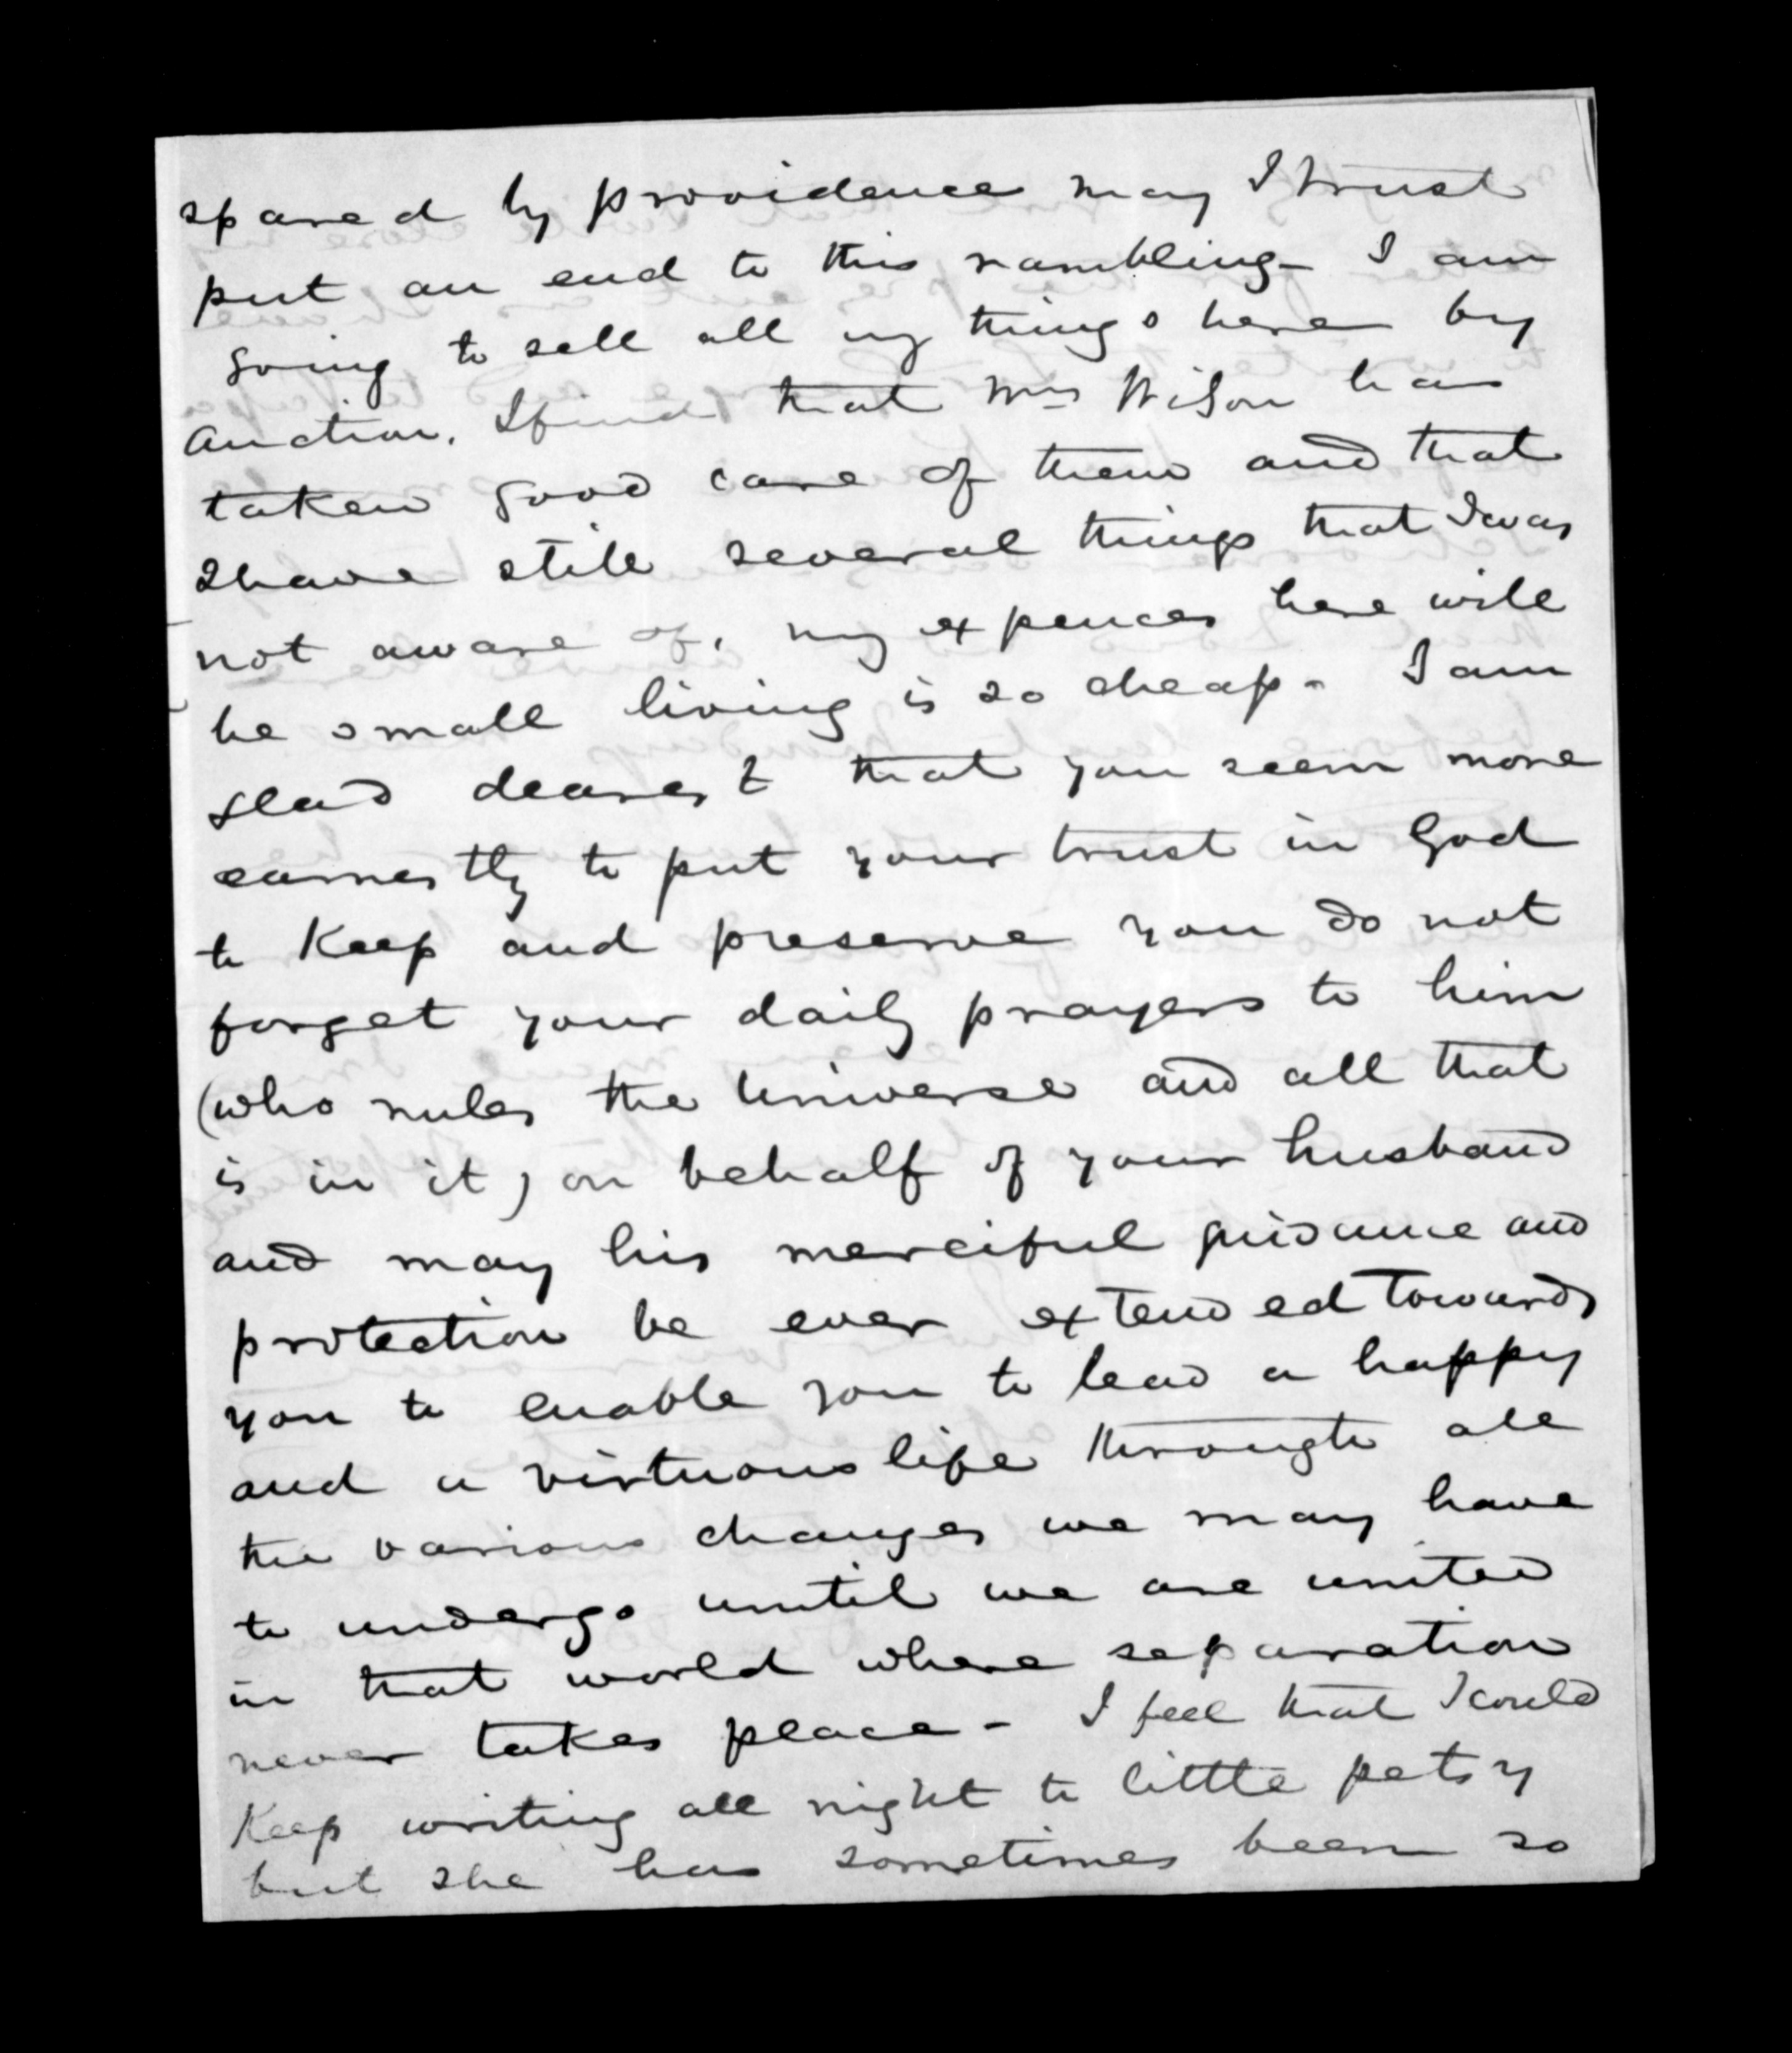 spared by providence may I trust
put an end to this rambling - I am
going to sell all my things here by
auction. I find that Mrs Wilson has
taken good care of them and that
I have still several things that I was
not aware of, my expences here will
be small living is so cheap - I am
glad dearest that you seem more
earnestly to put your trust in God
to keep and preserve you do not
forget your daily prayers to him
(who rules the Universe and all that
is in it) on behalf of your husband
and may his merciful guidance and
protection be ever extended towards
you to enable you to lead a happy
and a virtuous life through all
the various changes we may have
to undergo until we are united
in that world where separation
never takes place - I feel that I could
Keep writing all night to little petsy
but she has sometimes been so